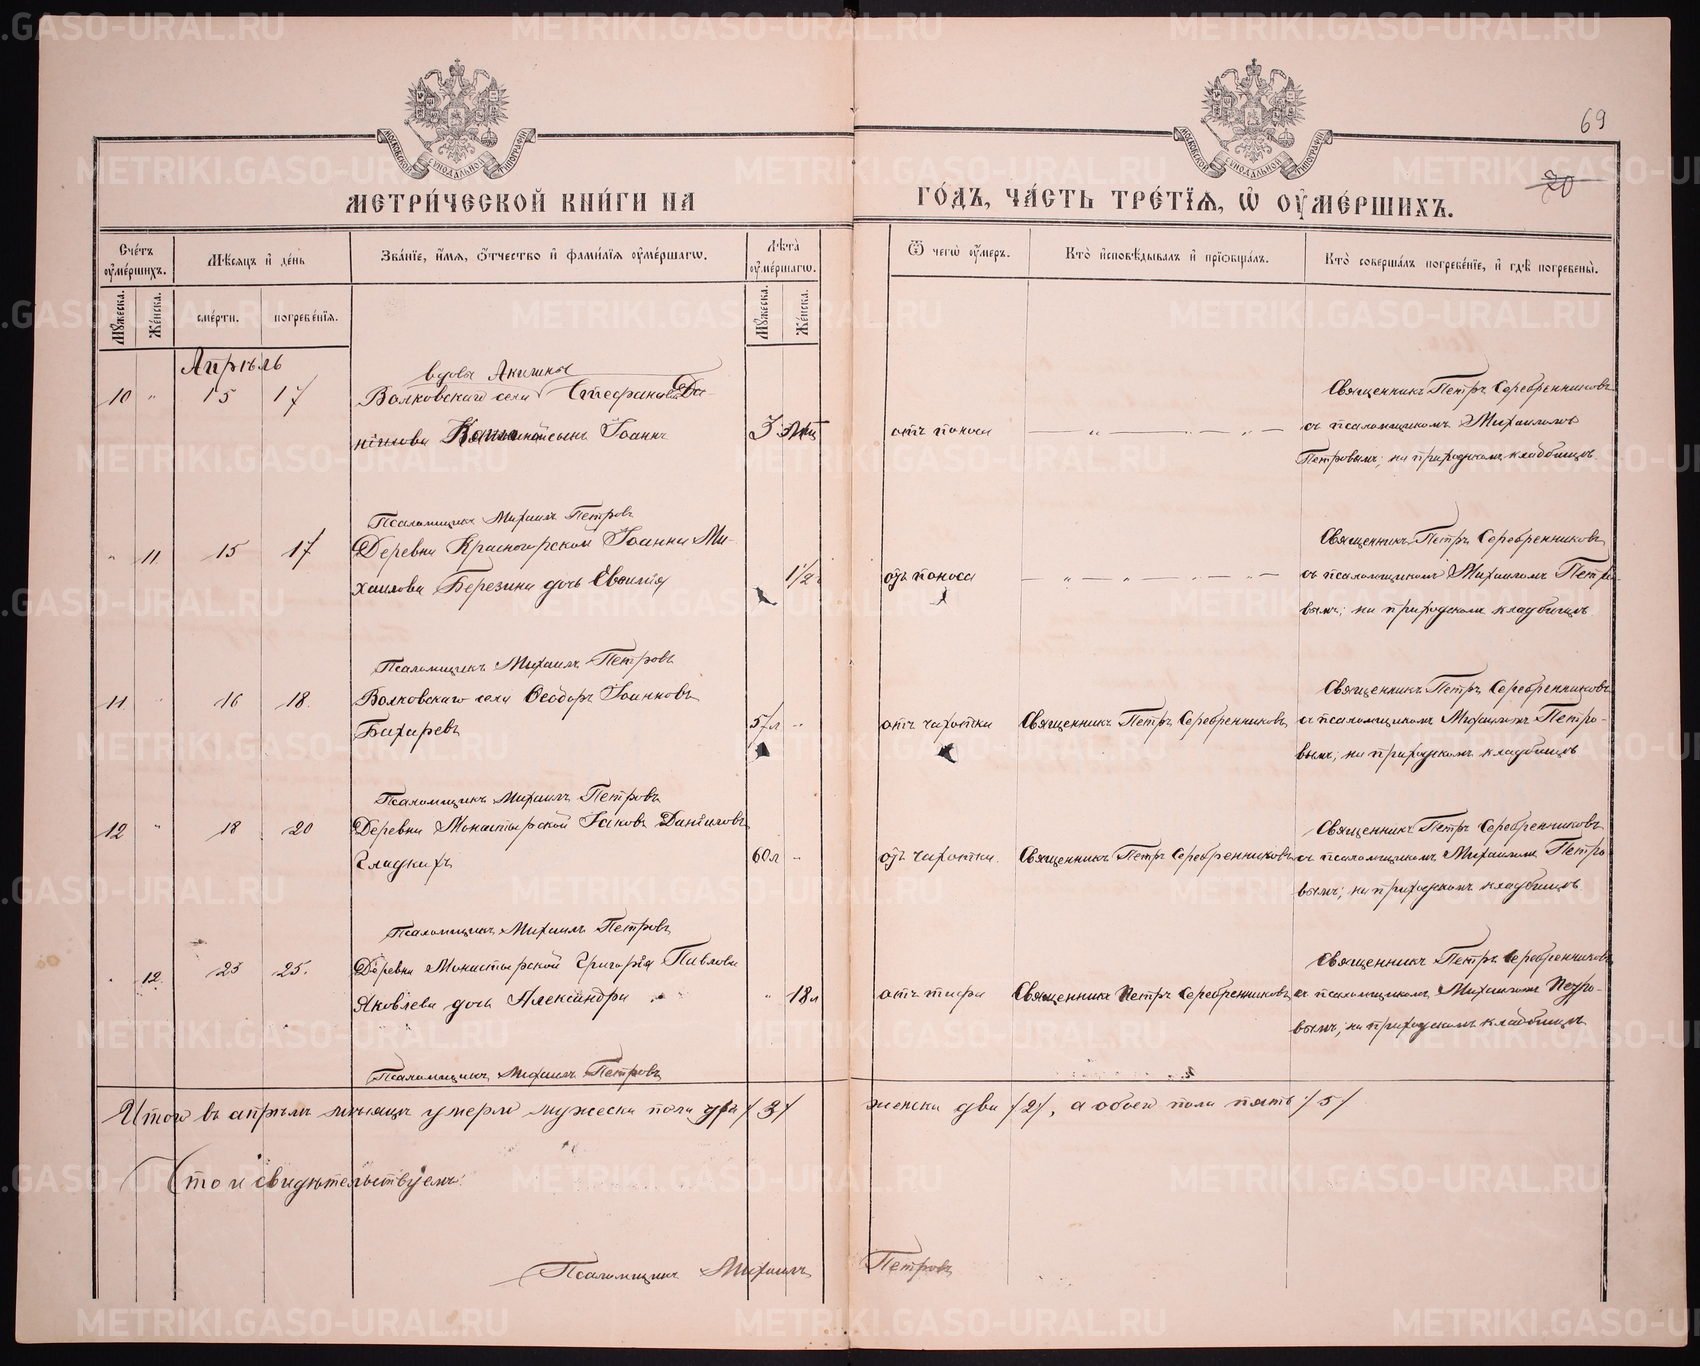 69
20
МОСКОВСКОЙ СУНОДАЛЬНОЙ ТИПОГРАФІИ
МОСКОВСКОЙ СУНОДАЛЬНОЙ ТИПОГРАФІИ
МЕТРИ́ЧЕСКОЙ КНИ́ГИ НА ГО́ДЪ, ЧА́СТЬ ТРЕ́ТІѦ, Ѡ҆ ОУ҆МЕ́РШИХЪ.
Сче́тъ оу҆ме́ршихъ.
Мꙋ́жеска.
Же́нска.
Мѣ́сѧцъ и҆ де́нь
сме́рти.
погребе́нїѧ.
Зва́нїе, и҆́мѧ, ѻ҆́тчество и҆ фами́лїѧ оу҆ме́ршагѡ.
Лѣ́та оу҆ме́ршагѡ.
Мꙋ́жеска.
Же́нска.
Ѿ чегѡ̀ оу҆́меръ.
Кто̀ и҆сповѣ́дывалъ и҆ прїѡбща́лъ.
Кто̀ соверша́лъ погребе́нїе, и҆ гдѣ̀ погребены̀.
Апрѣль
вдовы Акилины
10 " 15 17 Волковскаго села Стефановой Да-
ніиловы сынъ Іоаннъ 3 отъ поноса
Священникъ Петръ Серебренниковъ
съ псаломщикомъ Михаиломъ
Петровымъ; на приходскомъ кладбищѣ.
Псаломщикъ Михаилъ Петровъ
" 11 15 17 Деревни Красногорской Іоанна Ми-
хаилова Березина дочь Евдокія 1/2 отъ поноса
Священникъ Петръ Серебренниковъ
съ псаломщикомъ Михаиломъ Петро-
вымъ; на приходскомъ кладбищѣ
Псаломщикъ Михаилъ Петровъ
11 " 16 18. Волковскаго села Ѳеодоръ Іоанновъ
Бахаревъ 57л " отъ чахотки Священникъ Петръ Серебренниковъ
Священникъ Петръ Серебренниковъ
съ псаломщикомъ Михаиломъ Петро-
вымъ; на приходскомъ кладбищѣ
Псаломщикъ Михаилъ Петровъ
12 " 18 20 Деревни Монастырской Іаковъ Даніиловъ
Гладкихъ 60л " отъ чахотки. Священникъ Петръ Серебренниковъ
Священникъ Петръ Серебренниковъ
съ псаломщикомъ Михаиломъ Петро-
вымъ; на приходскомъ кладбищѣ
Псаломщикъ Михаилъ Петровъ
" 12 23 25. Деревни Монастырской Григорія Павлова
Яковлева дочь Александра " 18л отъ тифа Священникъ Петръ Серебренниковъ
Священникъ Петръ Серебренниковъ
съ псаломщикомъ Михаиломъ Петро-
вымъ; на приходскомъ кладбищѣ
Псаломщикъ Михаилъ Петровъ
Итого въ апрѣлѣ мѣсяцѣ умерло мужеска пола три /3/ женска два /2/, а обоего пола пять /5/
Что и свидѣтельствуемъ:
Псаломщикъ Михаилъ Петровъ
METRIKI.GASO-URAL.RU